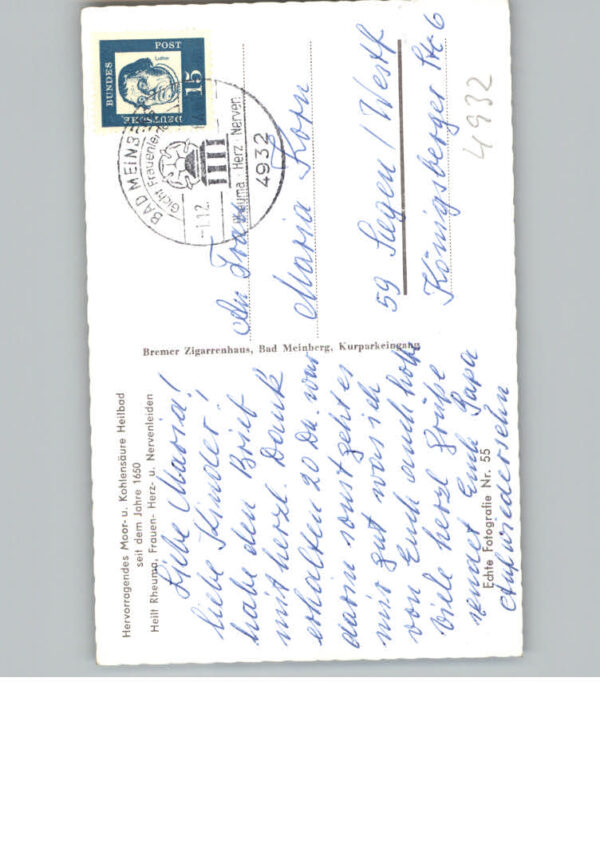 Hervorragendes Moor- u. Kohlensäure Heilbad
seit dem Jahre 1650
Heilt Rheuma, Frauen- Herz- u. Nervenleiden
Liebe Maria!
liebe Kinder!
habe den Brief
mit herzl. Dank
erhalten 20 DM. war
darin sonst geht es
mir gut was ich
von Euch auch hoffe
viele herzl Grüße
sendet Euch Papa
Aufwiedersehn
Echte Fotografie Nr. 55
Bremer Zigarrenhaus, Bad Meinberg, Kurparkeingang
DEUTSCHE
BUNDES
POST
Luther
15
BAD MEINB
Gicht Frauenleid
Rheuma Herz Nerven
4932
An Frau
Maria Korn
59 Siegen / Westf
Königsberger Str. 6
4932